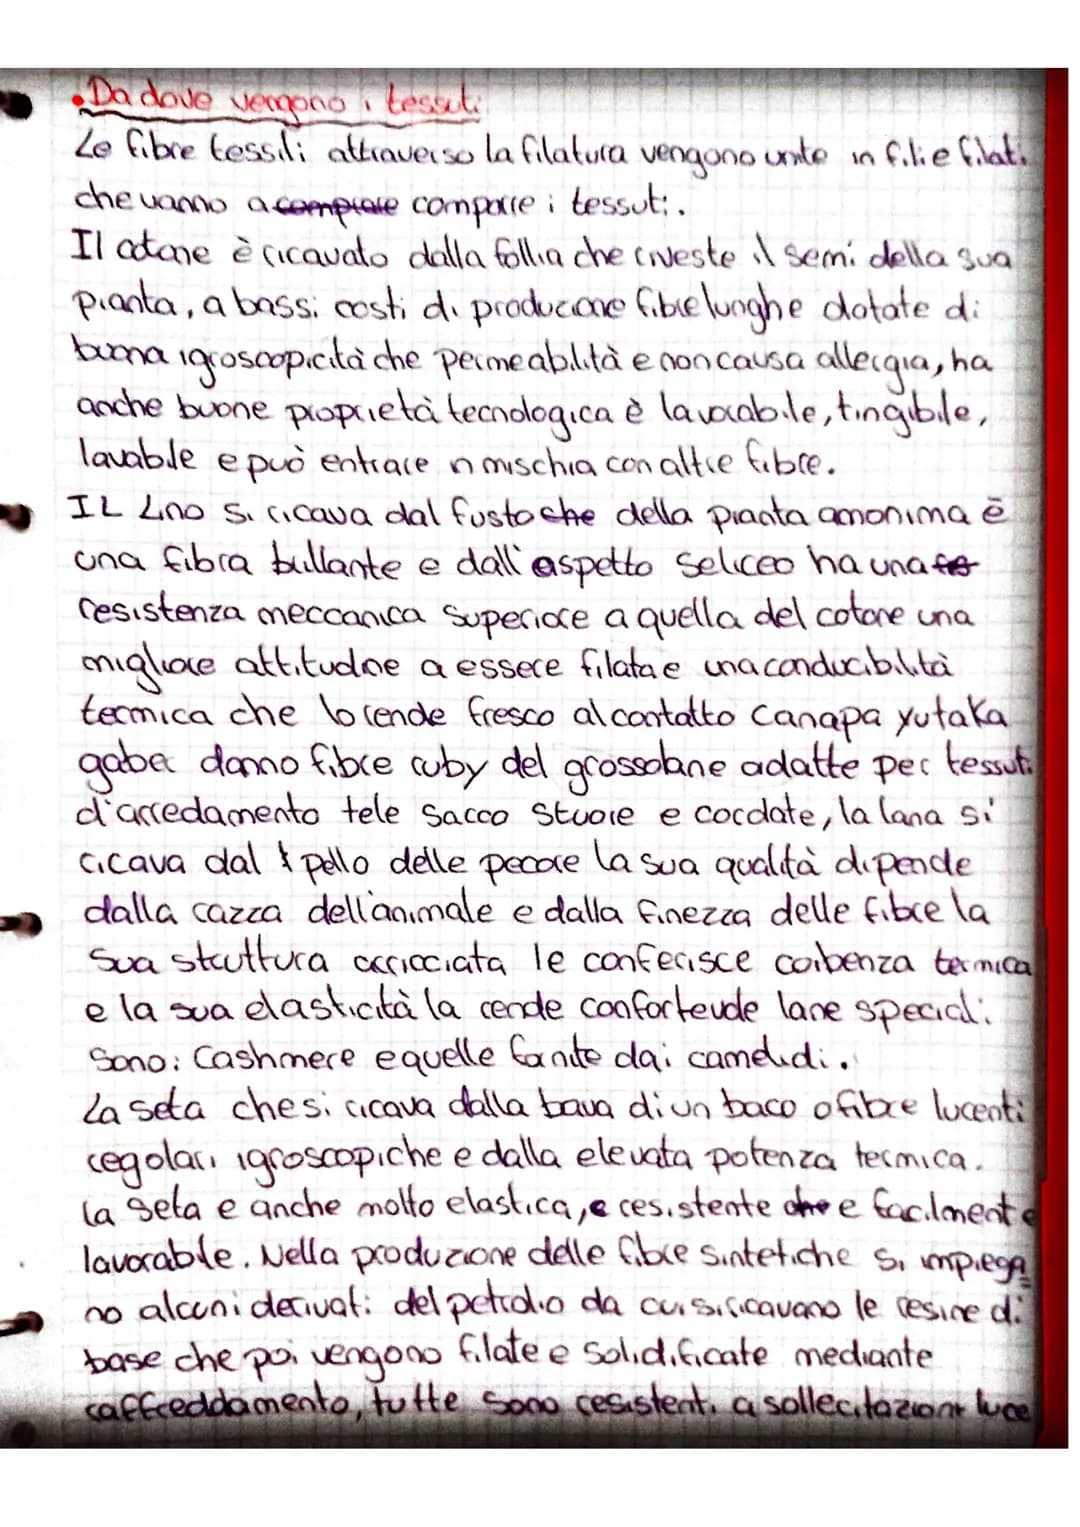 •Da dove vengono i tessuti
Le fibre tessili attraverso la filatura vengono unite in fili e filati
che vanno a comprare comporre i tessuti.
Il cotone è ricavato dalla follia che riveste il semi della sua
pianta, a bassi costi di produzione fibre lunghe dotate di
buona igroscopicità che permeabilità e non causa allergia, ha
anche buone proprietà tecnologica è lavorabile, tingibile,
lavabile e può entrare n mischia con altre fibre.
IL Lino si ricava dal fusto che della pianta omonima è
una fibra brillante e dall'aspetto seliceo ha una
resistenza meccanica superiore a quella del cotone una
migliore attitudine a essere filata e una conducibilità
termica che lo rende fresco al contatto canapa yutaka
gaber danno fibre ruby del grossolane adatte per tessuti
d'arredamento tele sacco stuoie e cordate, la lana si
ricava dal pello delle pecore la sua qualità dipende
dalla razza dell'animale e dalla finezza delle fibre la
sua struttura arricciata le conferisce coibenza termica
e la sua elasticità la rende confortevole lane speciali
sono: Cashmere e quelle fornite dai camelidi.
La seta che si ricava dalla bava di un baco o fibre lucenti
regolari igroscopiche e dalla elevata potenza termica.
la seta e anche molto elastica, e resistente che e facilmente
lavorabile. Nella produzione delle fibre sintetiche si impiega
no alcuni derivati del petrolio da cui si ricavano le resine di
base che poi vengono filate e solidificate mediante
raffreddamento, tutte sono resistenti a sollecitazioni luce